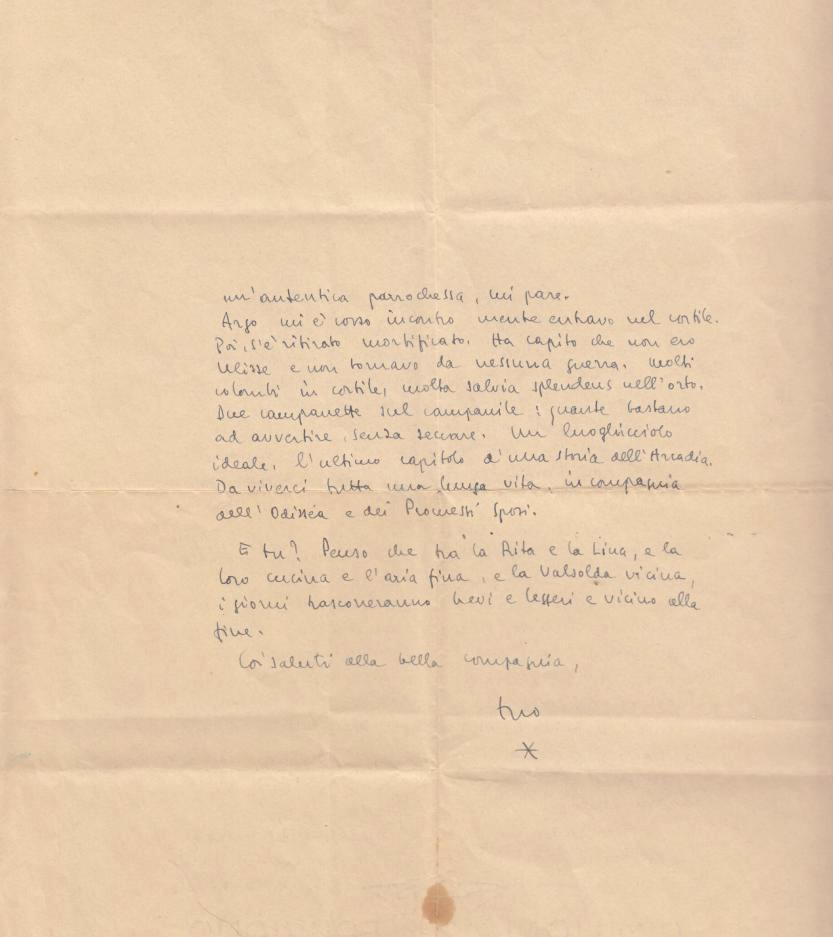 un'autentica parrochessa, mi pare.
Argo mi è corso incontro mente entravo nel cortile.
Poi, s'è ritirato mortificato. Ha capito che non ero
Ulisse e non tornavo da nessuna guerra. Molti
colombi in cortile, molta salvia splendens nell'orto.
Due campanette sul campanile: quante bastano
ad avvertire, senza seccare. Un luoghicciolo
ideale, l'ultimo capitolo d'una storia dell'Arcadia.
Da viverci tutta una lunga vita, in compagnia
dell'Odissea e dei Promessi Sposi.
E tu? Penso che tra la Rita e la Lina, e la
loro cucina e l'aria fina, e la Valsolda vicina,
i giorni trascorreranno brevi e leggeri e vicino alla
fine.
Coi saluti alla bella compagnia,
tuo
*